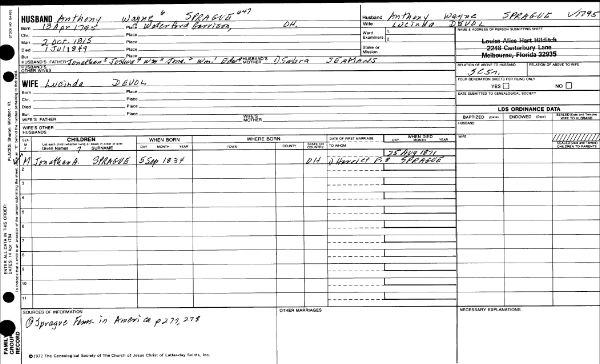 HUSBAND Anthony Wayne 6 SPRAGUE
Born 13 Apr 1795 Place Waterford Garrison, OH.
Chr. Place
Marr. 2 Oct. 1815 Place
Died 1 Jul 1849 Place
Bur. Place
HUSBAND'S FATHER Jonathan Joshua Wm Jona. Wm. Edw. HUSBAND'S MOTHER Sabra SEAMANS
HUSBAND'S OTHER WIVES
WIFE Lucinda DEVOL
Born Place
Chr. Place
Died Place
Bur. Place
WIFE'S FATHER WIFE'S MOTHER
WIFE'S OTHER HUSBANDS
Husband Anthony Wayne SPRAGUE V/1795
Wife Lucinda DEVOL
Ward 1.
Examiners: 2.
Stake or Mission
NAME & ADDRESS OF PERSON SUBMITTING SHEET
Louise Alice Hart Hilditch
2248 Canterbury Lane
Melbourne, Florida 32935
RELATION OF ABOVE TO HUSBAND RELATION OF ABOVE TO WIFE
FOUR GENERATION SHEETS FOR FILING ONLY
YES NO
DATE SUBMITTED TO GENEALOGICAL SOCIETY
LDS ORDINANCE DATA
BAPTIZED (Date) ENDOWED (Date)
HUSBAND
WIFE
SEALED (Date and Temple) CHILDREN TO PARENTS
SEX M F CHILDREN
Given Names SURNAME
WHEN BORN
DAY MONTH YEAR
WHERE BORN
TOWN COUNTY STATE OR COUNTRY
DATE OF FIRST MARRIAGE
TO WHOM
WHEN DIED
DAY MONTH YEAR
1 M Jonathan A. SPRAGUE 5 Sep 1834 OH 25 Aug 1871
Harriet P. SPRAGUE
2
3
4
5
6
7
8
9
10
11
SOURCES OF INFORMATION
Sprague Fams. in America p 277, 278
OTHER MARRIAGES
NECESSARY EXPLANATIONS
©1972 The Genealogical Society of The Church of Jesus Christ of Latter-day Saints, Inc.
ENTER ALL DATA IN THIS ORDER:
DATES: 14 Apr 1794
FAMILY GROUP RECORD